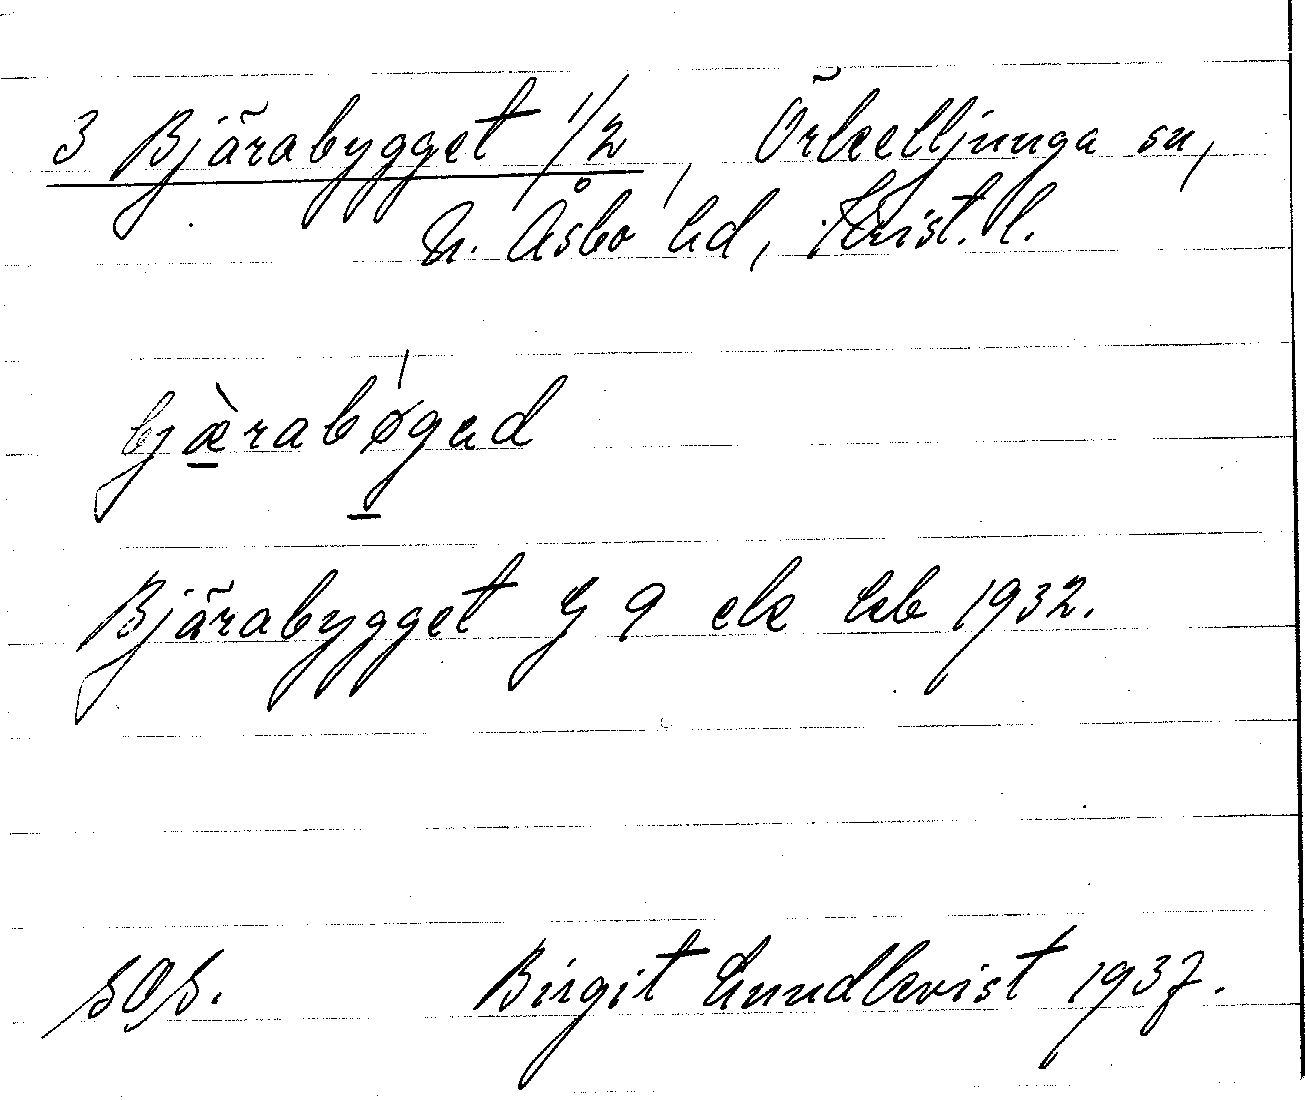 3 Bjärabygget 1/2, Örkelljunga sn,
N. Åsbo hd, Krist. l.
bjæ̀rabøgad
Bjärabygget G 9 ek kb 1932.
SOS. Birgit Lundkvist 1937.